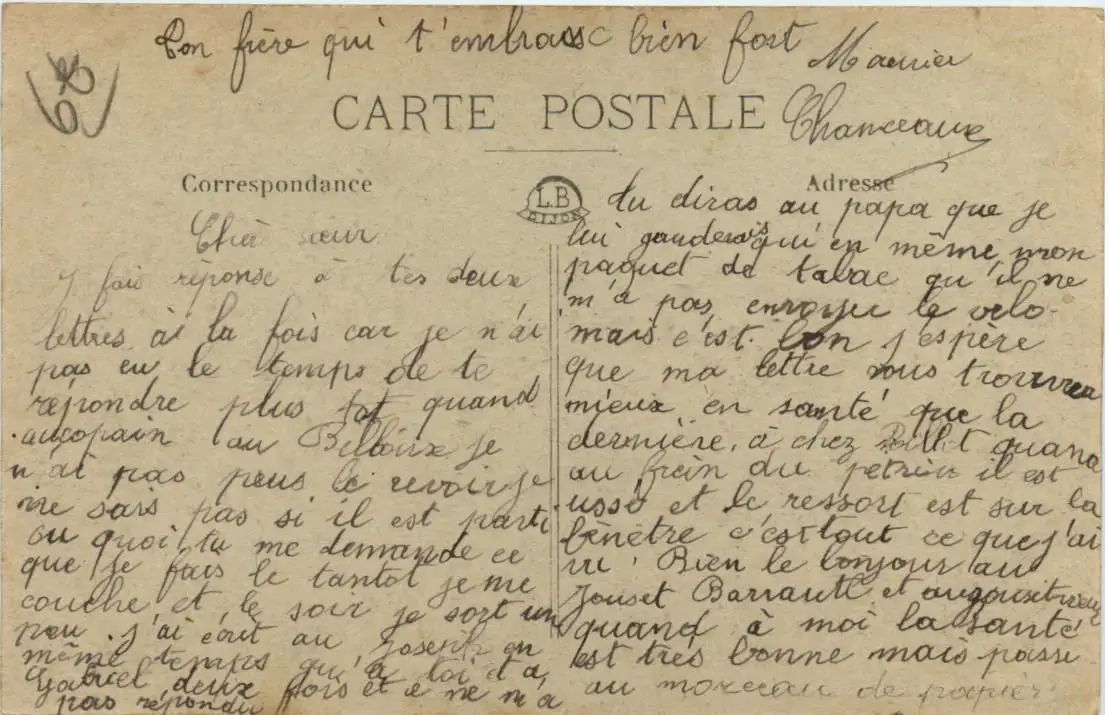 Ton frère qui t'embrasse bien fort
Maurice
Chanceaux
68
CARTE POSTALE
Correspondance
Adresse
L.B
DIJON
Chère sœur
J fais réponse à tes deux
lettres à la fois car je n'ai
pas eu le temps de te
répondre plus tot quand
au copain au je
n'ai pas peus le revoir je
ne sais pas si il est parti
ou quoi, tu me demande ce
que je fais le tantot je me
couche et le soir je sort un
peu. j'ai écrit au Joseph en
même temps qu'à toi et à
Gabriel deux fois et e ne m'a
pas répondu
tu diras au papa que je
lui qu'en même mon
paquet de tabac qu'il ne
m'a pas envoyer le velo
mais c'est bon j'espère
que ma lettre vous trouvera
mieux en santé que la
dernière, à chez quand
au frein du petrin il est
usse et le ressort est sur la
fenètre c'est tout ce que j'ai
vu. Bien le bonjour au
Jouset Barrault et
quand à moi la santé
est très bonne mais passe
au morceau de papier